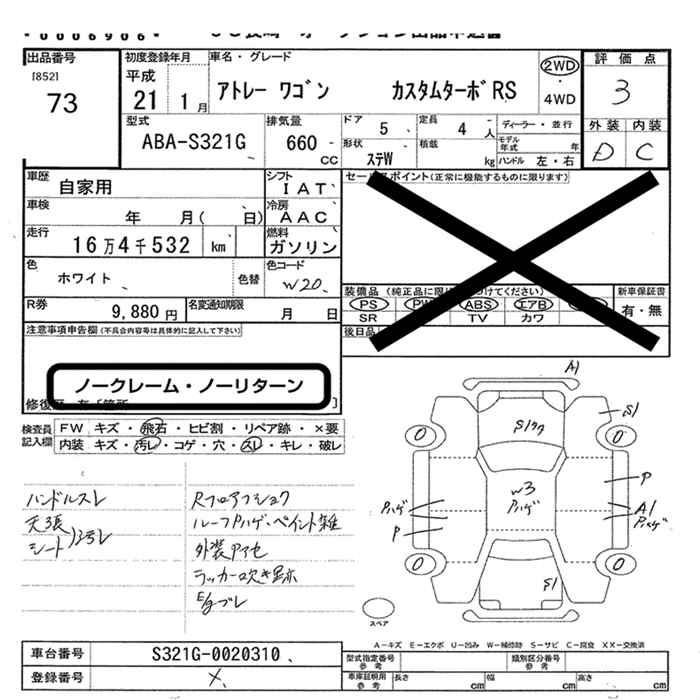 0006906
出品番号
[852]
73
初度登録年月
平成
21 1 月
車名・グレード
アトレー ワゴン カスタムターボRS
2WD
・
4WD
評価点
3
外装 内装
D C
型式
ABA-S321G
排気量
660
CC
ドア
5
定員
4 人
形状
ステW
積載
kg
ディーラー・並行
モデル年式 年
ハンドル 左・右
車歴
自家用
シフト
IAT
車検
年 月( 日)
冷房
AAC
走行
16万4千532 km
燃料
ガソリン
色
ホワイト
色替
色コード
W20
R券
9,880 円
名変通知期限
月 日
セールスポイント(正常に機能するものに限ります)
装備品
PS PW ABS エアB
SR TV カワ
新車保証書
有・無
後日品
注意事項申告欄(不具合内容等は具体的に記入して下さい)
ノークレーム・ノーリターン
検査員記入欄
FW キズ・飛石・ヒビ割・リペア跡・×要
内装 キズ・汚レ・コゲ・穴・スレ・キレ・破レ
ハンドルスレ
天張
シート)汚レ
Rフロアフショク
ルーフPハゲ・ペイント雑
外装色アセ
ラッカー吹き跡
E/gブレ
A1
S1
S1ワク
W3
Pハゲ
P
A1
Pハゲ
Pハゲ
P
S1
スペア
A-キズ E-エクボ U-凹み W-補修跡 S-サビ C-腐食 XX-交換済
車台番号
S321G-0020310
登録番号
×
型式指定番号
参考
類別区分番号
参考
車庫証明用
参考
長さ cm
幅 cm
高さ cm